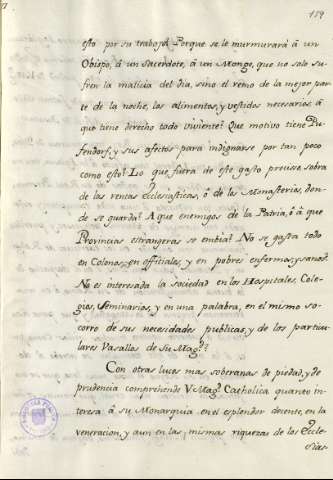 159
esto por su trabajo? Porque se le murmurará á un
Obispo, á un Sacerdote, á un Monge, que no solo su-
fren la malicia del dia, sino el resto de la mejor par-
te de la noche, los alimentos, y vestidos necesarios á
que tiene derecho todo viviente? Que motivo tiene Pu-
fendorf, y sus afectos para indignarse por tan poco
como esto? Lo que fuera de este gasto preciso sobra
de las rentas Ecclesiasticas, ó de los Monasterios, don-
de se guarda? A que enemigos de la Patria, ó á que
Provincias estrangeras se embia? No se gasta todo
en Colonos, en officiales, y en pobres enfermos, y sanos?
No es interesada la sociedad en los Hospitales, Cole-
gios, Seminarios, y en una palabra, en el mismo so-
corro de sus necesidades publicas, y de los particu-
lares Vasallos de Su Mag.d?
Con otras luces mas soberanas de piedad, y de
prudencia comprehende V. Mag. Catholica quanto in-
teresa á su Monarquia en el esplendor decente, en la
veneracion, y aun en las mismas riquezas de las Eccle-
sias